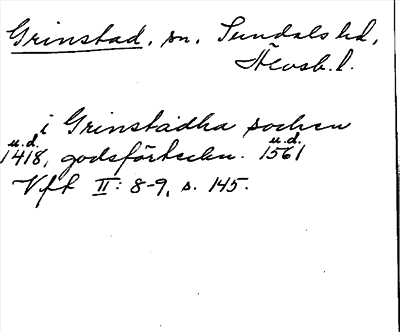 Grinstad, sn. Sundals hd,
Älvsb. l.
i Grinstadha sochen
u.d. u.d.
1418, godsförteckn. 1561
Vff II: 8-9, s. 145.